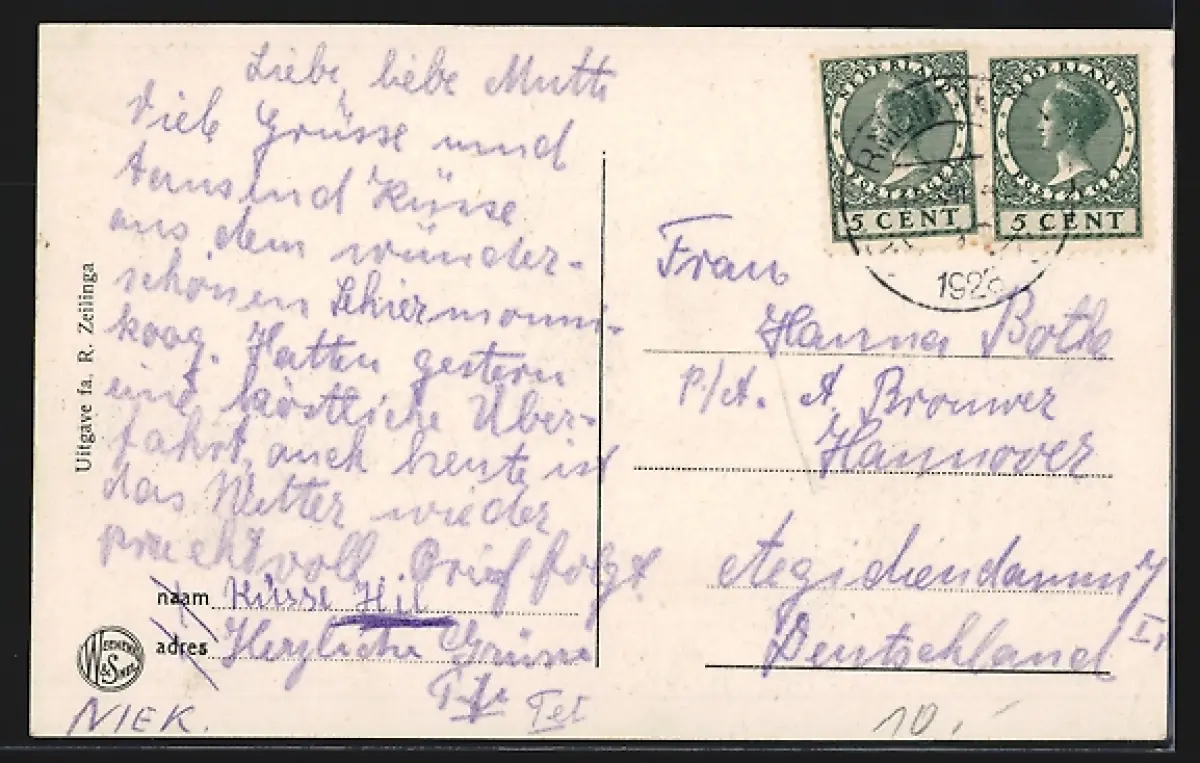 Liebe, liebe Mutti
Viele Grüsse und
tausend Küsse
aus dem wunder-
schönen Schiermonni-
koog. Hatten gestern
eine köstliche Über-
fahrt, auch heute ist
das Wetter wieder
prachtvoll Brief folgt
naam Küsse Hil
adres Herzliche Grüsse
Tet
NIEK.
Uitgave fa. R. Zeilinga
NEDERLAND
POSTZEGEL
5 CENT
NEDERLAND
POSTZEGEL
5 CENT
Frau
Hanna Both
p/A. A. Brouwer
Hannover
Aegidiendamm
Deutschland
10,-